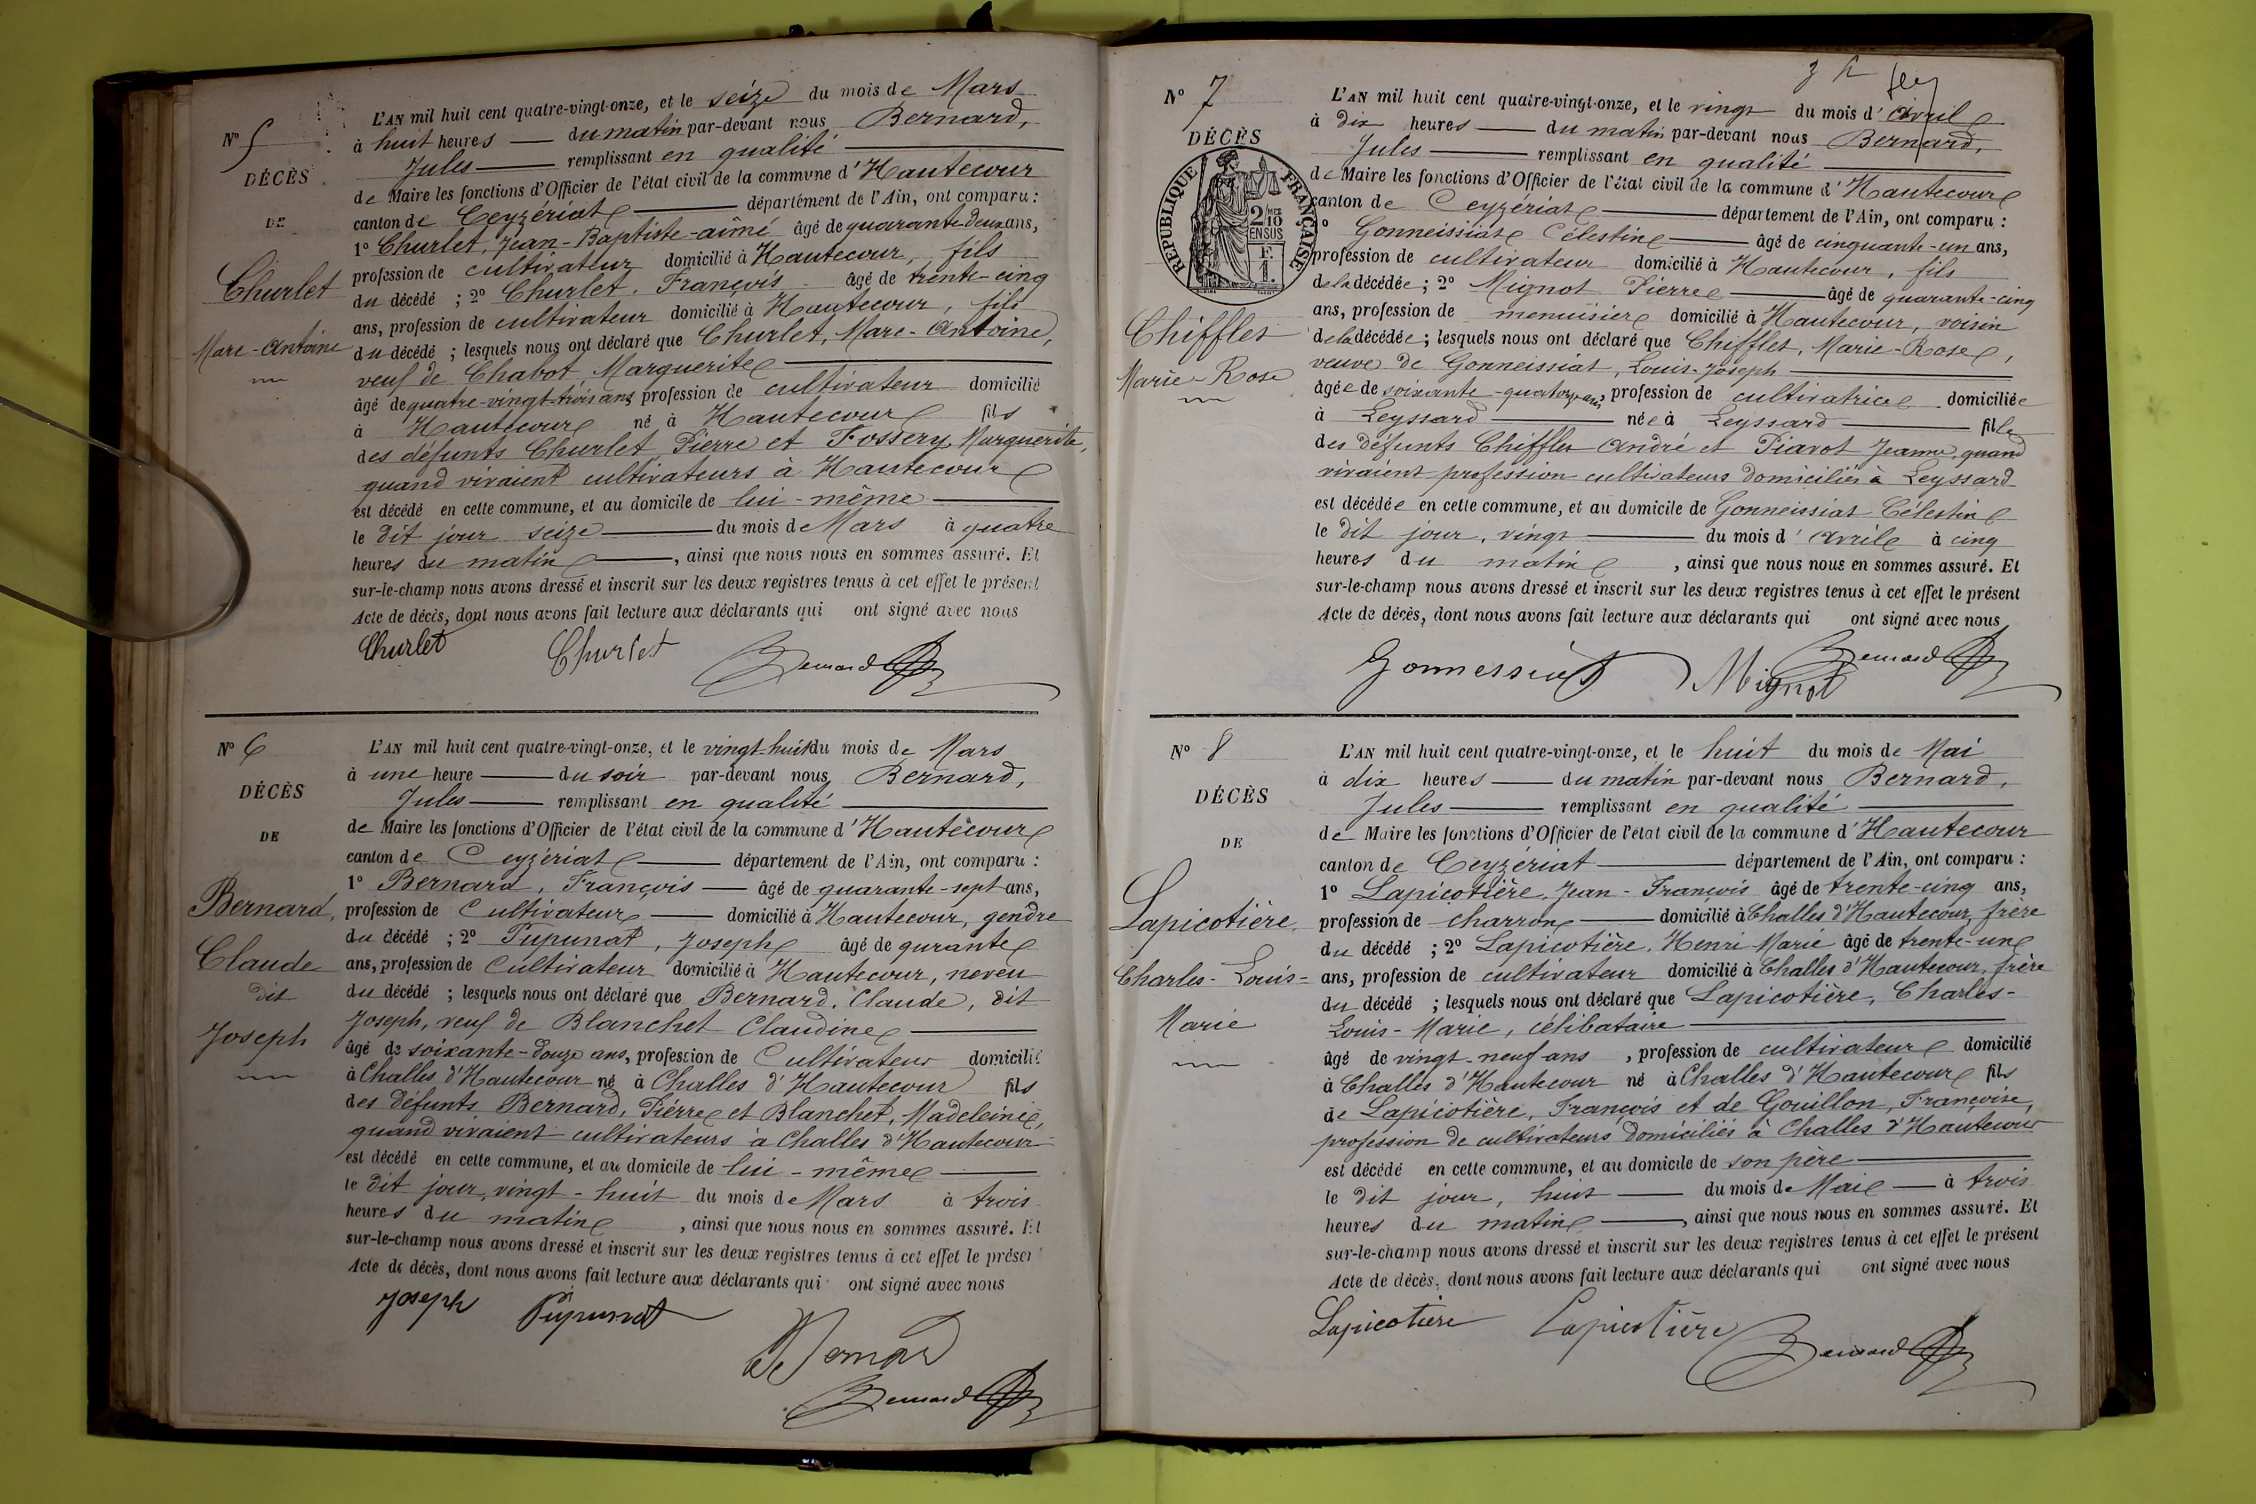 N° 5
DÉCÈS
DE
Churlet
Marc-Antoine
L'AN mil huit cent quatre-vingt-onze, et le seize du mois de Mars
à huit heures — du matin par-devant nous Bernard,
Jules — remplissant en qualité —
de Maire les fonctions d'Officier de l'état civil de la commune d'Hautecour
canton de Ceyzériat — département de l'Ain, ont comparu :
1° Churlet, Jean-Baptiste-aîmé âgé de quarante-deux ans,
profession de cultivateur domicilié à Hautecour, fils
du décédé ; 2° Churlet, François âgé de trente-cinq
ans, profession de cultivateur domicilié à Hautecour, fils
du décédé ; lesquels nous ont déclaré que Churlet, Marc-Antoine,
veuf de Chabot, Marguerite —
âgé de quatre-vingt-trois ans, profession de cultivateur domicilié
à Hautecour né à Hautecour fils
des défunts Churlet, Pierre et Fossery, Marguerite,
quand vivaient cultivateurs à Hautecour
est décédé en cette commune, et au domicile de lui-même —
le dit jour seize — du mois de Mars à quatre
heures du matin —, ainsi que nous nous en sommes assuré. Et
sur-le-champ nous avons dressé et inscrit sur les deux registres tenus à cet effet le présent
Acte de décès, dont nous avons fait lecture aux déclarants qui ont signé avec nous
Churlet Churlet Bernard
N° 6
DÉCÈS
DE
Bernard,
Claude
dit
Joseph
L'AN mil huit cent quatre-vingt-onze, et le vingt-huit du mois de Mars
à une heure — du soir par-devant nous Bernard,
Jules — remplissant en qualité —
de Maire les fonctions d'Officier de l'état civil de la commune d'Hautecour
canton de Ceyzériat — département de l'Ain, ont comparu :
1° Bernard, François — âgé de quarante-sept ans,
profession de Cultivateur — domicilié à Hautecour, gendre
du décédé ; 2° Pupunat, Joseph âgé de qurante
ans, profession de Cultivateur domicilié à Hautecour, neveu
du décédé ; lesquels nous ont déclaré que Bernard, Claude, dit
Joseph, veuf de Blanchet Claudine —
âgé de soixante-douze ans, profession de Cultivateur domicilié
à Challes d'Hautecour né à Challes d'Hautecour fils
des défunts Bernard, Pierre et Blanchet, Madeleine,
quand vivaient cultivateurs à Challes d'Hautecour
est décédé en cette commune, et au domicile de lui-même —
le dit jour, vingt-huit du mois de Mars à trois
heures du matin, ainsi que nous nous en sommes assuré. Et
sur-le-champ nous avons dressé et inscrit sur les deux registres tenus à cet effet le présen
Acte de décès, dont nous avons fait lecture aux déclarants qui ont signé avec nous
Joseph Pupunat
Bernard
Bernard
N° 7
DÉCÈS
RÉPUBLIQUE FRANÇAISE
2 10
MES
EN SUS
F.
1.
Chifflet
Marie-Rose
L'AN mil huit cent quatre-vingt-onze, et le vingt du mois d'avril
à dix heures — du matin par-devant nous Bernard,
Jules — remplissant en qualité —
de Maire les fonctions d'Officier de l'état civil de la commune d'Hautecour
canton de Ceyzériat — département de l'Ain, ont comparu :
° Gonneissiat Célestin — âgé de cinquante-un ans,
profession de cultivateur domicilié à Hautecour, fils
de la décédée ; 2° Mignot Pierre — âgé de quarante-cinq
ans, profession de menuisier domicilié à Hautecour, voisin
de la décédée ; lesquels nous ont déclaré que Chifflet, Marie-Rose,
veuve de Gonneissiat, Louis-Joseph —
âgée de soixante-quatorze ans, profession de cultivatrice domiciliée
à Leyssard — née à Leyssard — fille
des défunts Chifflet André et Piavot Jeanne, quand
vivaient profession cultivateurs domiciliés à Leyssard
est décédée en cette commune, et au domicile de Gonneissiat Célestin
le dit jour, vingt — du mois d'avril à cinq
heures du matin, ainsi que nous nous en sommes assuré. Et
sur-le-champ nous avons dressé et inscrit sur les deux registres tenus à cet effet le présent
Acte de décès, dont nous avons fait lecture aux déclarants qui ont signé avec nous
Gonnessiat Mignot Bernard
N° 8
DÉCÈS
DE
Lapicotière,
Charles-Louis-
Marie
L'AN mil huit cent quatre-vingt-onze, et le huit du mois de Mai
à dix heures — du matin par-devant nous Bernard,
Jules — remplissant en qualité —
de Maire les fonctions d'Officier de l'état civil de la commune d'Hautecour
canton de Ceyzériat — département de l'Ain, ont comparu :
1° Lapicotière, Jean-François âgé de trente-cinq ans,
profession de charron — domicilié à Challes d'Hautecour, frère
du décédé ; 2° Lapicotière, Henri Marie âgé de trente-un
ans, profession de cultivateur domicilié à Challes d'Hautecour, frère
du décédé ; lesquels nous ont déclaré que Lapicotière, Charles-
Louis-Marie, célibataire —
âgé de vingt-neuf ans, profession de cultivateur domicilié
à Challes d'Hautecour né à Challes d'Hautecour fils
de Lapicotière, François et de Gouillon, Françoise,
profession de cultivateurs domiciliés à Challes d'Hautecour
est décédé en cette commune, et au domicile de son père —
le dit jour, huit — du mois de Mai — à trois
heures du matin —, ainsi que nous nous en sommes assuré. Et
sur-le-champ nous avons dressé et inscrit sur les deux registres tenus à cet effet le présent
Acte de décès, dont nous avons fait lecture aux déclarants qui ont signé avec nous
Lapicotière Lapicotière Bernard